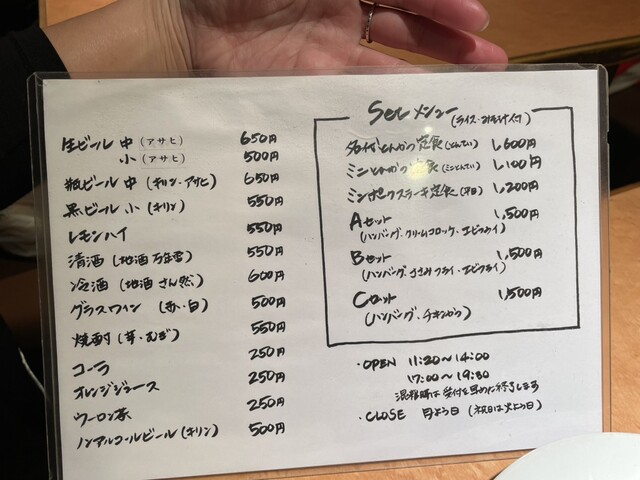 生ビール 中 (アサヒ) 650円
小 (アサヒ) 500円
瓶ビール 中 (キリン・アサヒ) 650円
黒ビール 小 (キリン) 550円
レモンハイ 550円
清酒 (地酒 万年雪) 550円
冷酒 (地酒 さん然) 600円
グラスワイン (赤・白) 500円
焼酎 (芋・むぎ) 550円
コーラ 250円
オレンジジュース 250円
ウーロン茶 250円
ノンアルコールビール (キリン) 500円
Setメニュー
(ライス・みそ汁付)
とんかつ定食 (とんてい) 1,600円
ミニとんかつ定食 (ミニとんてい) 1,100円
ミニポークステーキ定食 (平日) 1,200円
Aセット 1,500円
(ハンバーグ、クリームコロッケ、エビフライ)
Bセット 1,500円
(ハンバーグ、ささみフライ・エビフライ)
Cセット 1,500円
(ハンバーグ、チキンかつ)
・OPEN 11:20~14:00
17:00~19:30
混雑時は受付を早めた終了します
・CLOSE 月よう日 (祝日は火よう日)